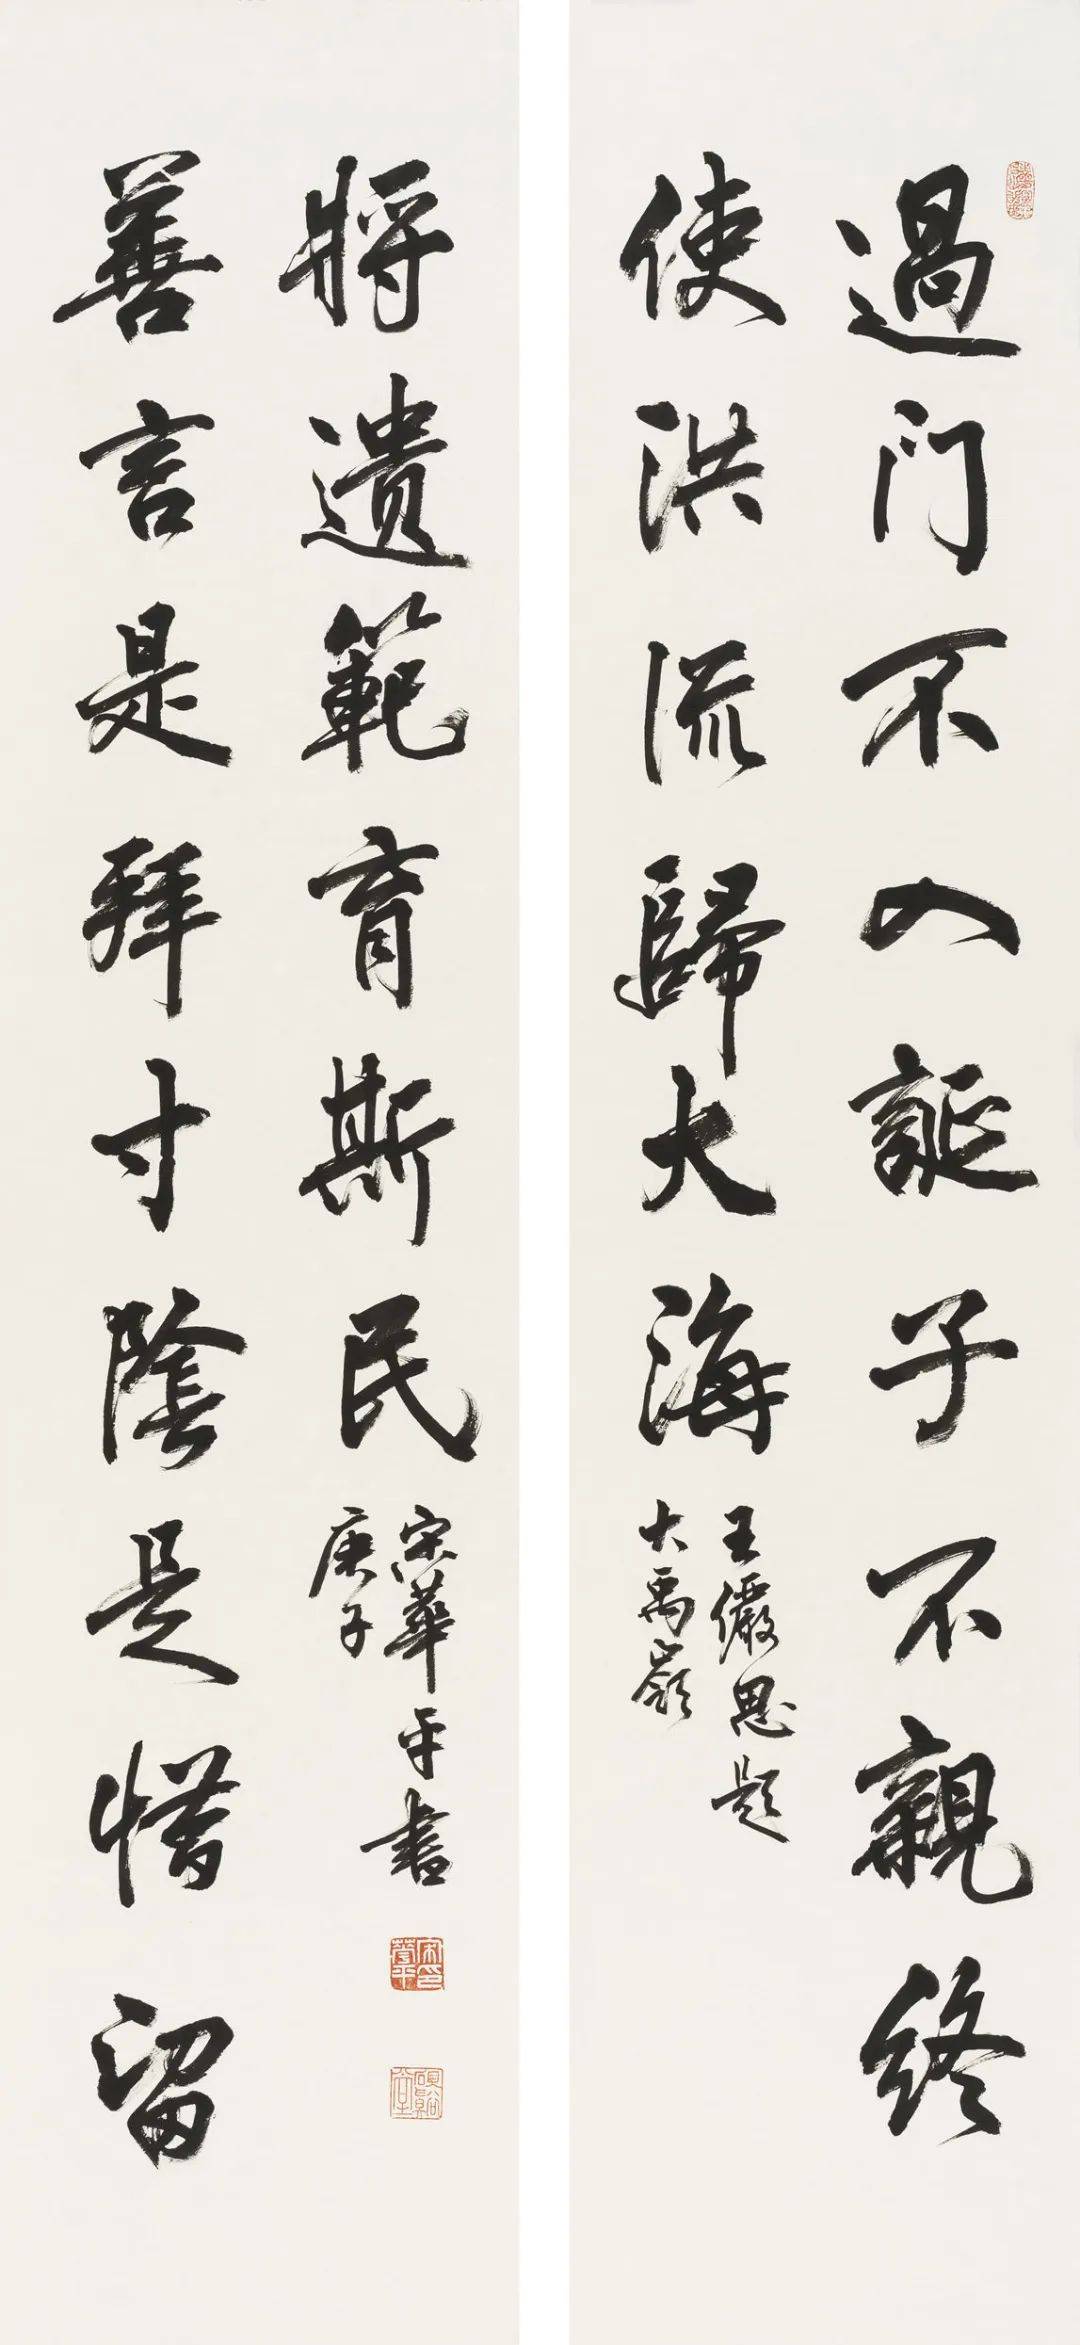 過門不入誕子不親終
使洪流歸大海
王儼思題
大禹嶺
善言是拜寸陰是惜留
將遺範育斯民
庚子
宋華平書
宋華平印